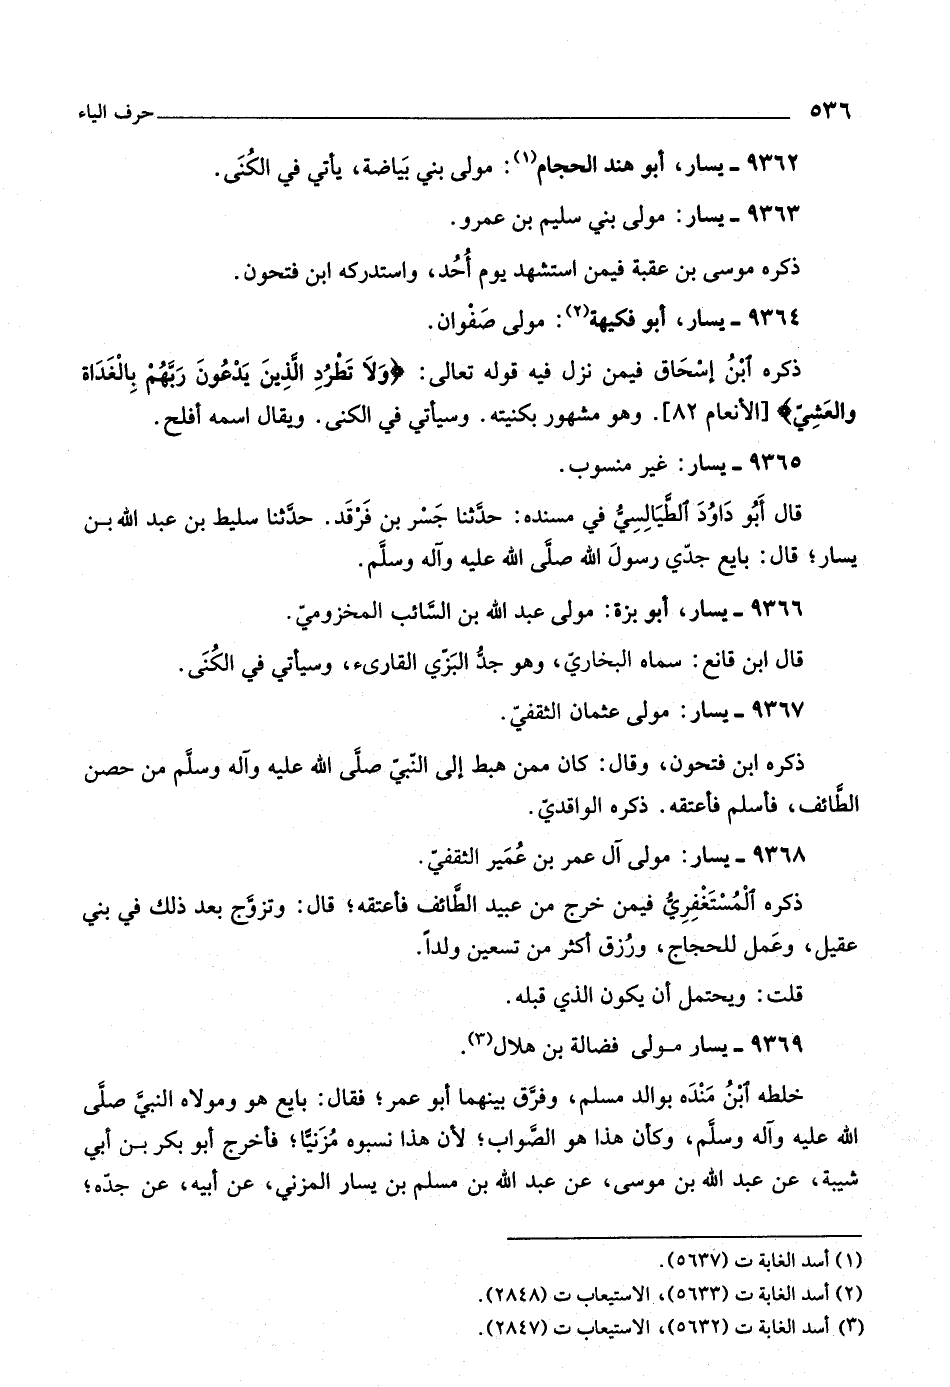 ٥٣٦ حرف الياء
٩٣٦٢ ـ يسار، أبو هند الحجام(١): مولى بني بَياضة، يأتي في الكُنَى.
٩٣٦٣ ـ يسار: مولى بني سليم بن عمرو.
ذكره موسى بن عقبة فيمن استشهد يوم أُحُد، واستدركه ابن فتحون.
٩٣٦٤ ـ يسار، أبو فكيهة(٢): مولى صَفْوان.
ذكره ٱبْنُ إسْحَاق فيمن نزل فيه قوله تعالى: ﴿وَلَا تَطْرُدِ الَّذِينَ يَدْعُونَ رَبَّهُمْ بِالْغَدَاة
والعَشِيّ﴾ [الأنعام ٨٢]. وهو مشهور بكنيته. وسيأتي في الكنى. ويقال اسمه أفلح.
٩٣٦٥ ـ يسار: غير منسوب.
قال أَبُو دَاوُدَ ٱلطَّيَالِسِيُّ في مسنده: حدَّثنا جَسْر بن فَرْقَد. حدَّثنا سليط بن عبد الله بـن
يسار؛ قال: بايع جدّي رسولَ الله صلَّى الله عليه وآله وسلَّم.
٩٣٦٦ ـ يسار، أبو بزة: مولى عبد الله بن السَّائب المخزوميّ.
قال ابن قانع: سماه البخاريّ، وهو جدُّ البَزّي القارىء، وسيأتي في الكُنَى.
٩٣٦٧ ـ يسار: مولى عثمان الثقفيّ.
ذكره ابن فتحون، وقال: كان ممن هبط إلى النّبيّ صلَّى الله عليه وآله وسلَّم من حصن
الطَّائف، فأسلم فأعتقه. ذكره الواقديّ.
٩٣٦٨ ـ يسار: مولى آل عمر بن عُمَير الثقفيّ.
ذكره ٱلْمُسْتَغْفِرِيُّ فيمن خرج من عبيد الطَّائف فأعتقه؛ قال: وتزوَّج بعد ذلك في بني
عقيل، وعَمل للحجاج، ورُزق أكثر من تسعين ولداً.
قلت: ويحتمل أن يكون الذي قبله.
٩٣٦٩ ـ يسار مـولى فضالة بن هلال(٣).
خلطه ٱبْنُ مَنْدَه بوالد مسلم، وفرَّق بينهما أبو عمر؛ فقال: بايع هو ومولاه النبيَّ صلَّى
الله عليه وآله وسلَّم، وكأن هذا هو الصَّواب؛ لأن هذا نسبوه مُزَنيًّا؛ فأخرج أبو بكر بـن أبي
شيبة، عن عبد الله بن موسى، عن عبد الله بن مسلم بن يسار المزني، عن أبيه، عن جدّه؛
(١) أسد الغابة ت (٥٦٣٧).
(٢) أسد الغابة ت (٥٦٣٣)، الاستيعاب ت (٢٨٤٨).
(٣) أسد الغابة ت (٥٦٣٢)، الاستيعاب ت (٢٨٤٧).